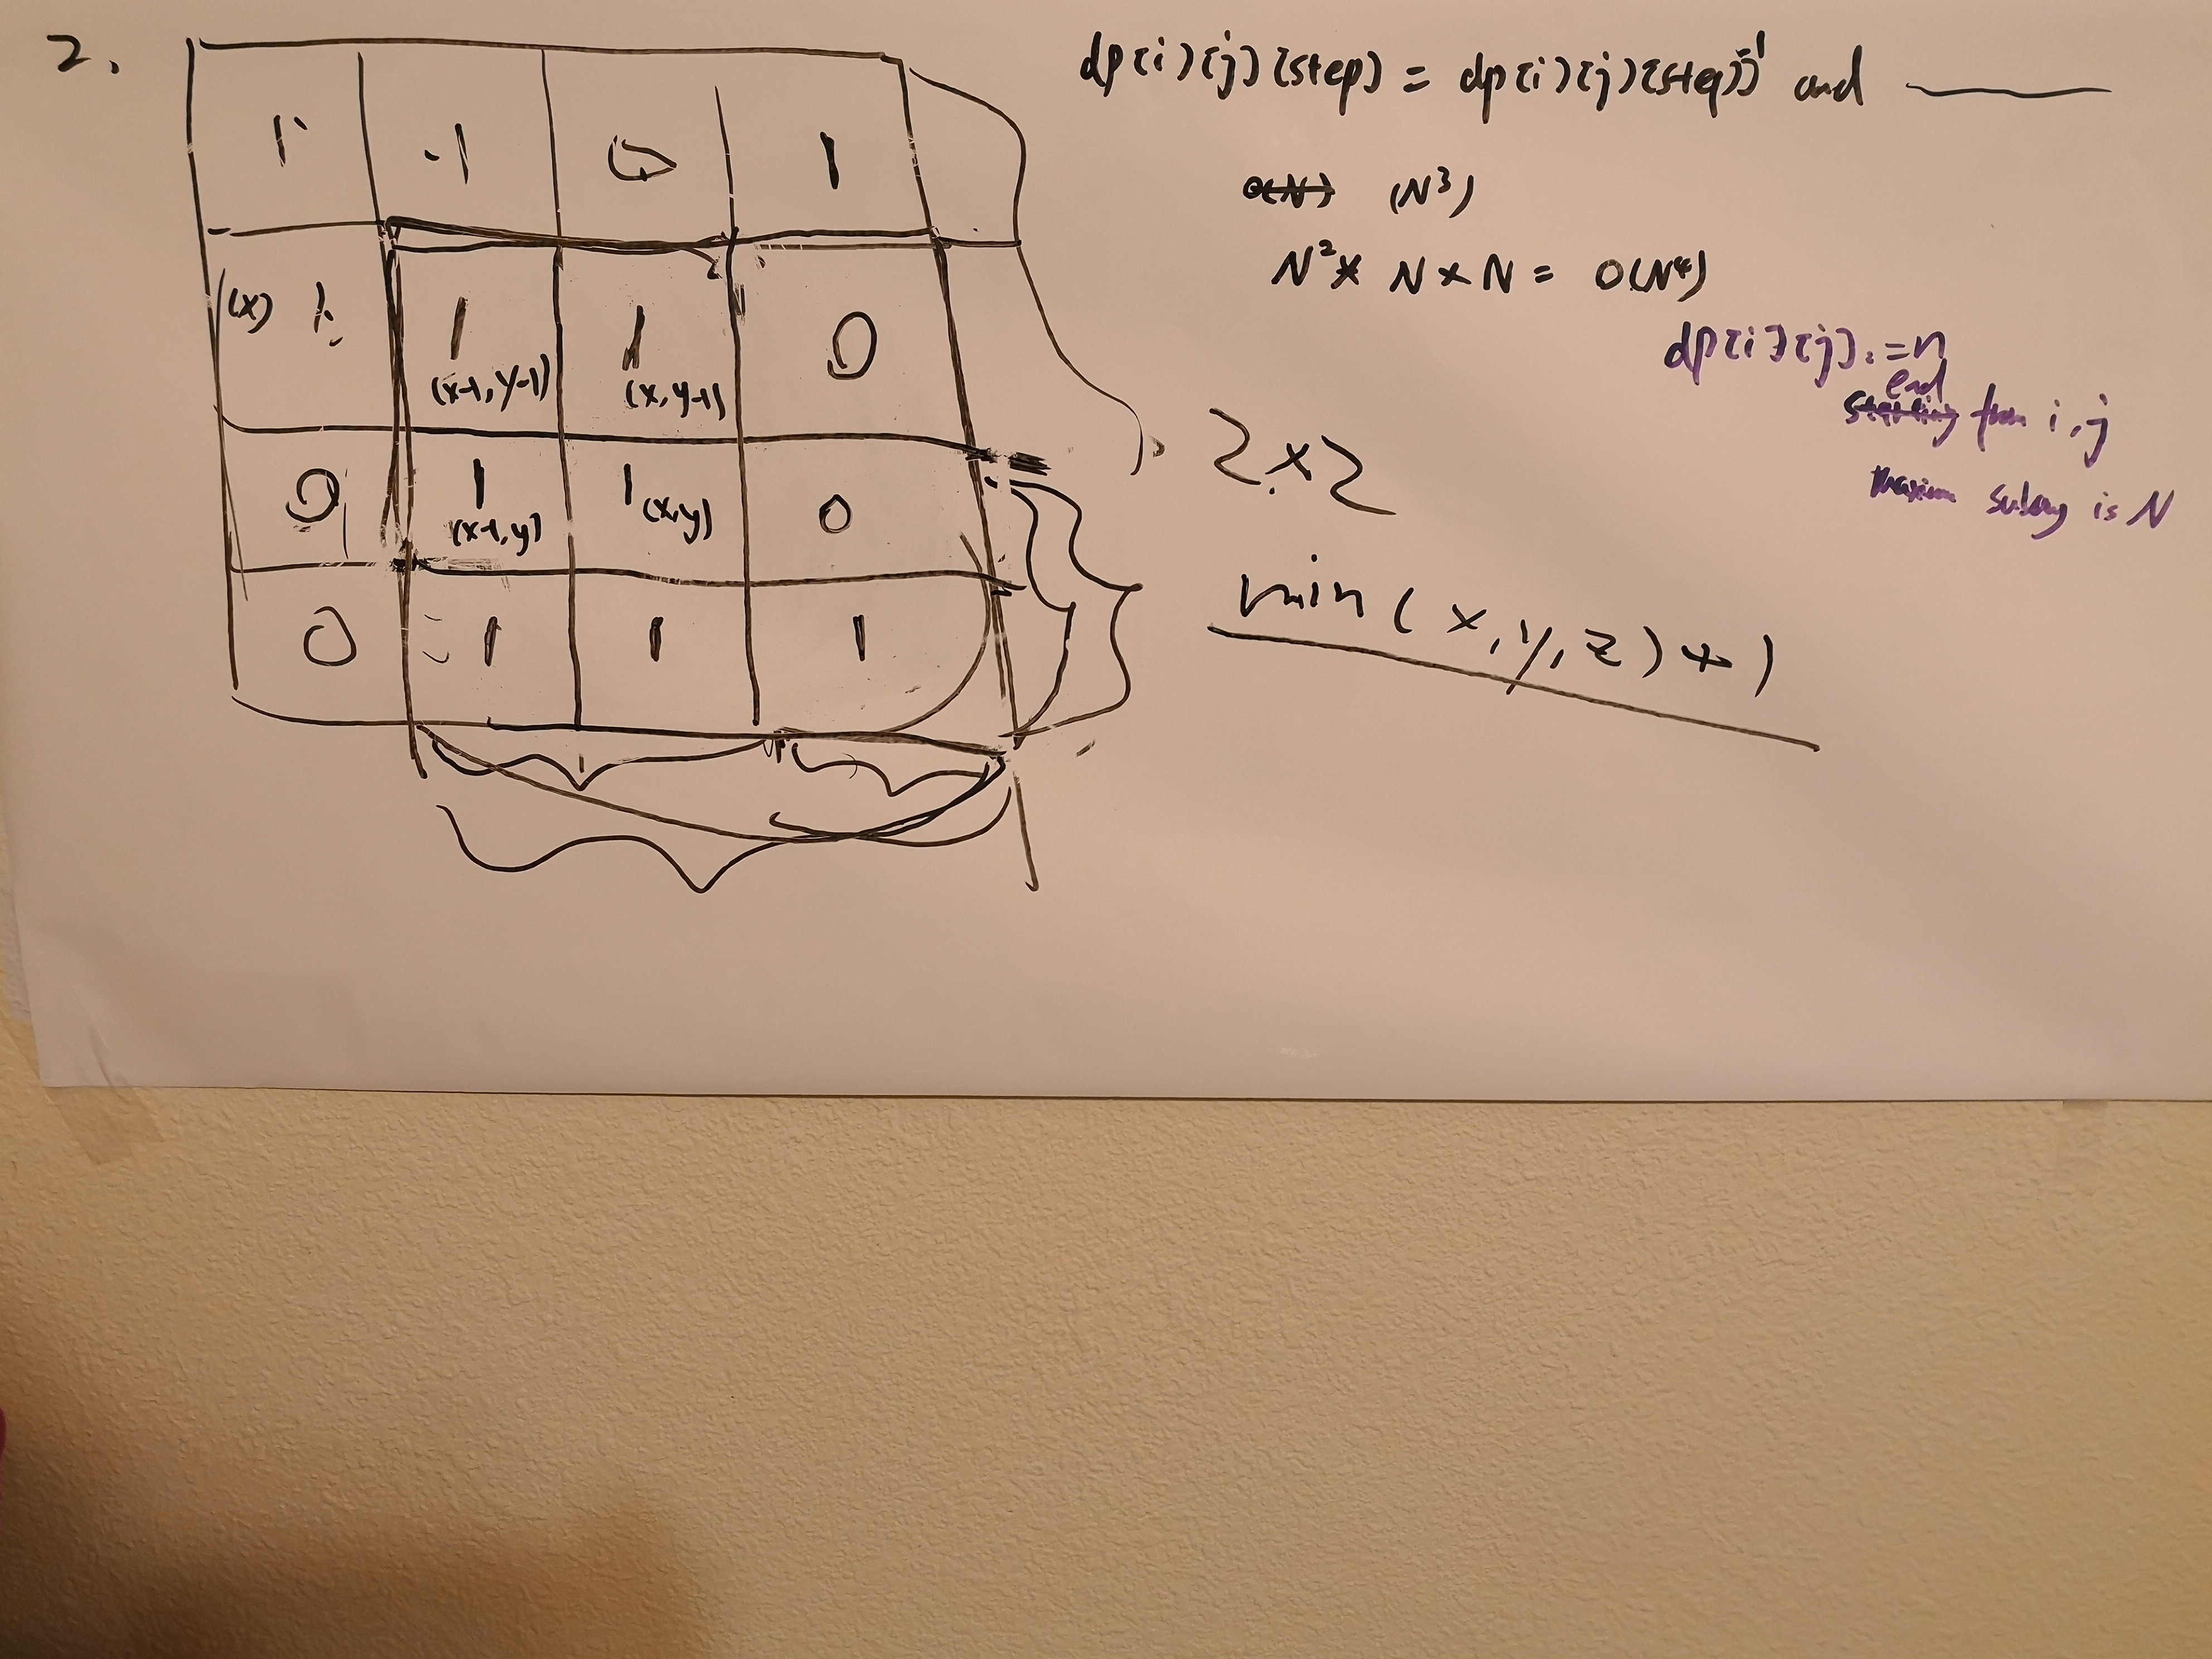 2.
1 1 0 1
(x) 1 1 1 0
(x-1, y-1) (x, y-1)
0 1 1 0
(x-1, y) (x,y)
0 1 1 1
dp[i][j][step] = dp[i][j][step]-1 and
O(N) (N³)
N² * N * N = O(N⁴)
dp[i][j] = n
end
starting from i, j
maximum subarray is N
2x2
min(x, y, z) + 1